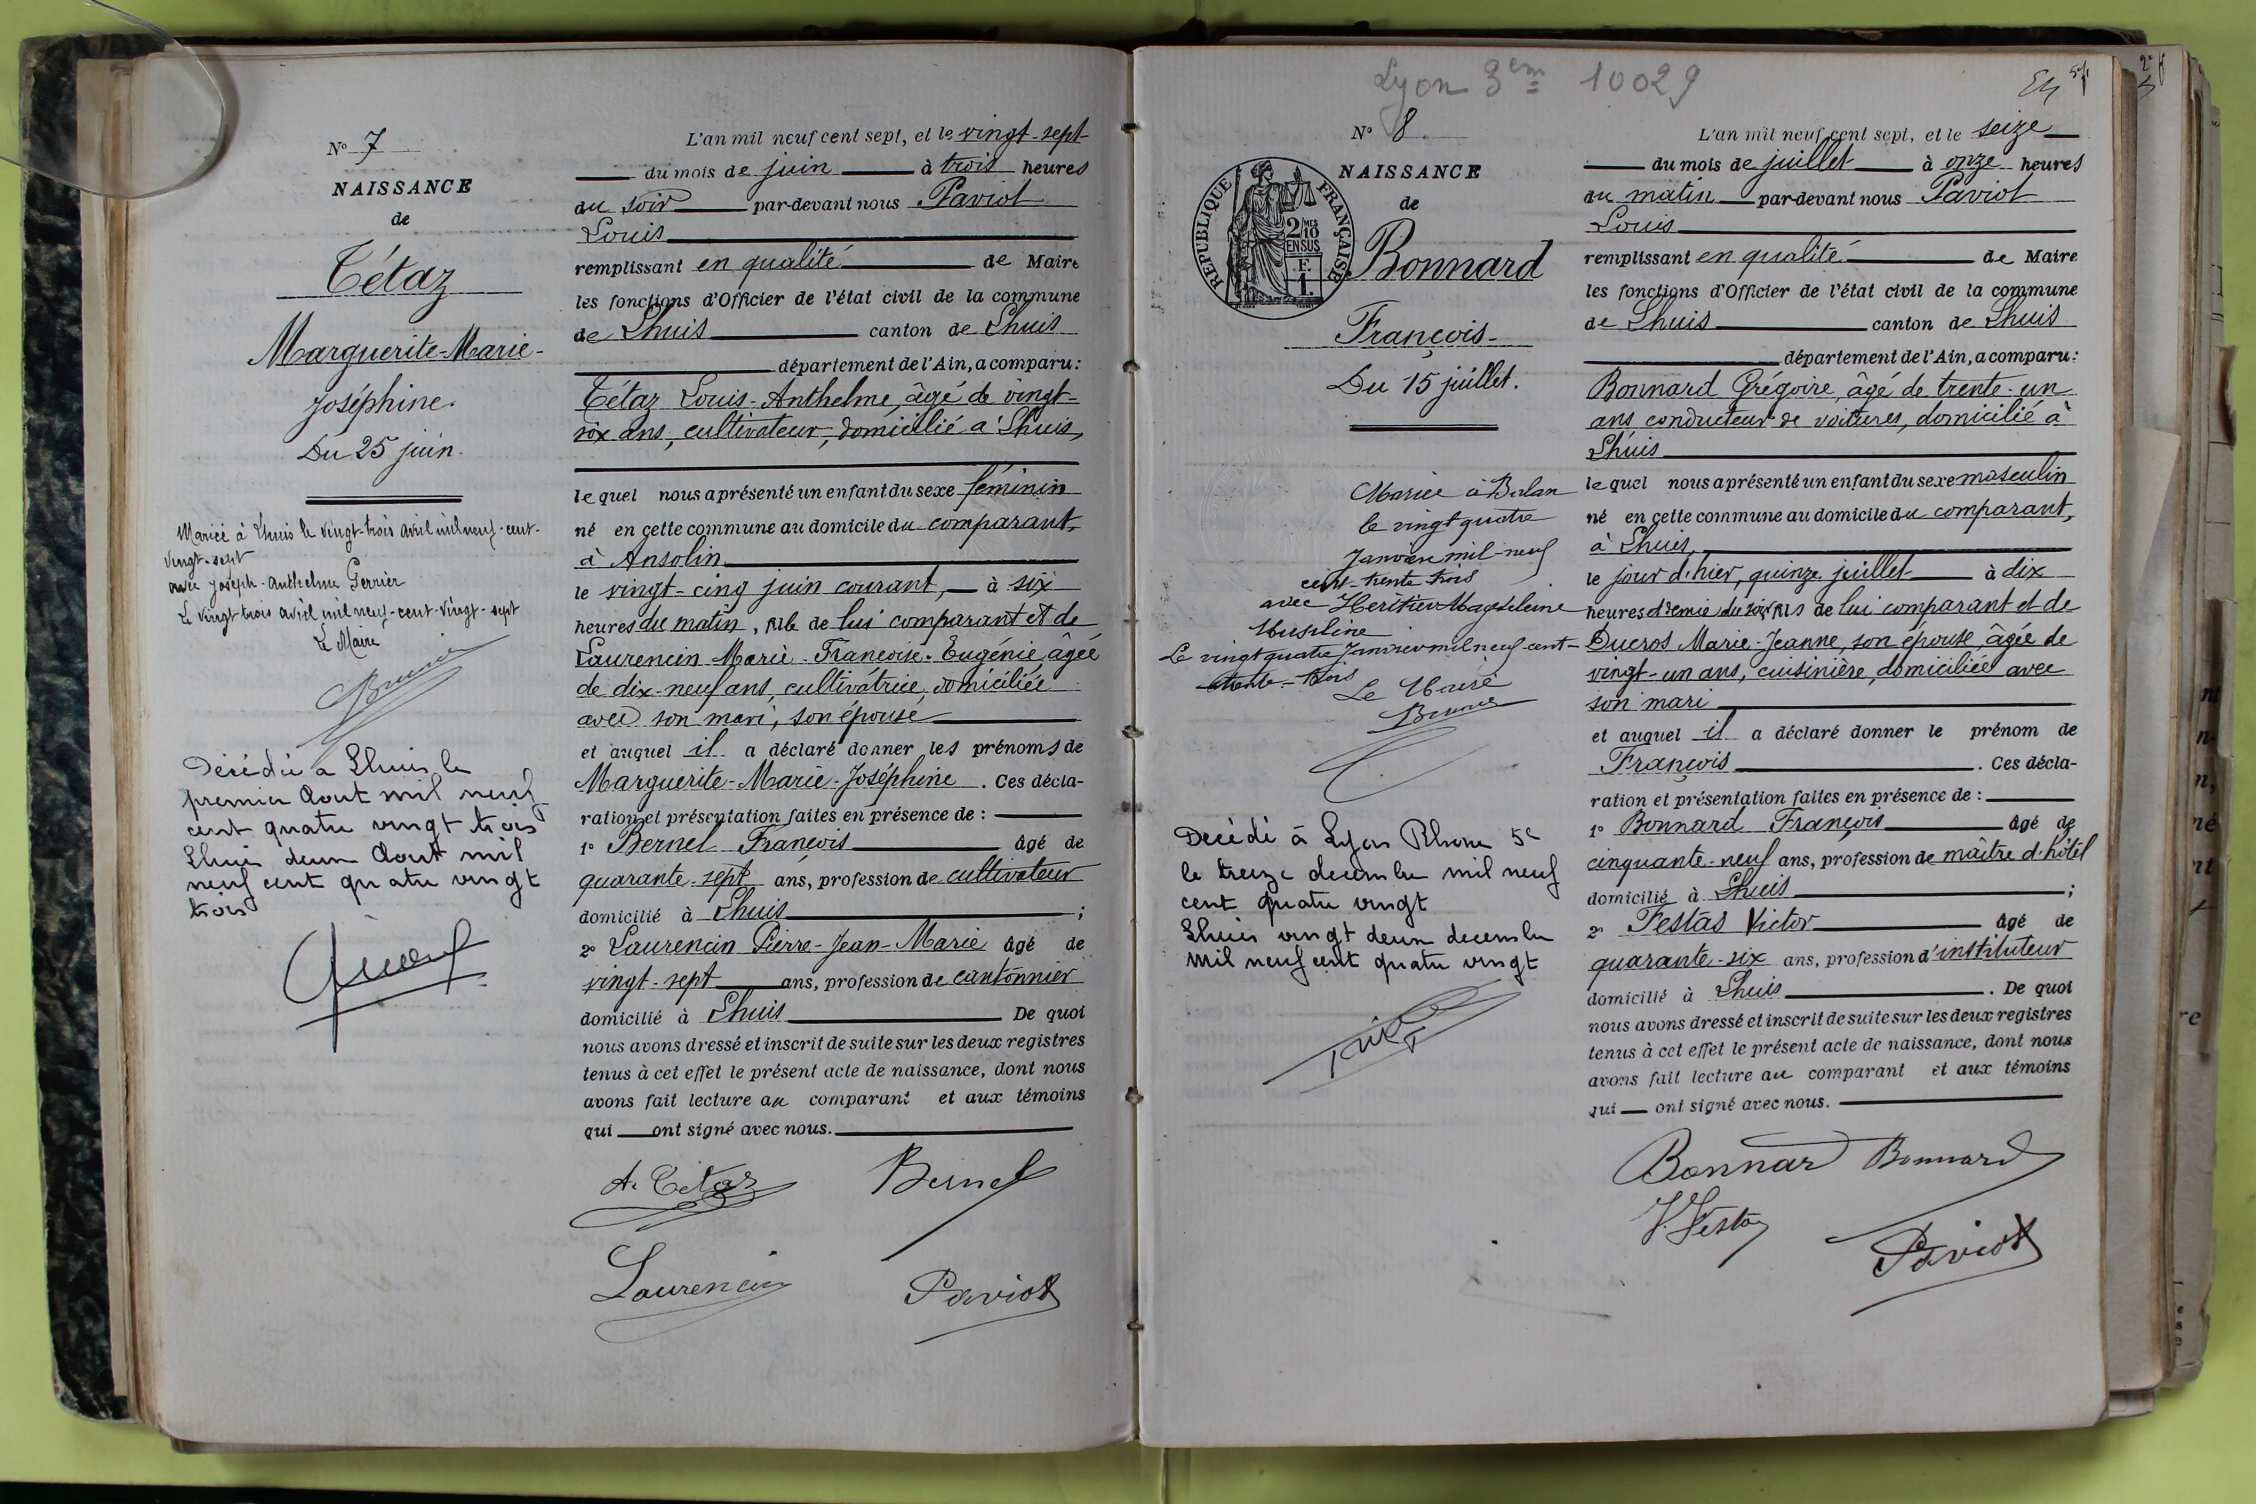 N° 7
NAISSANCE
de
Tétaz
Marguerite-Marie-
Joséphine.
Du 25 juin.
Mariée à Lhuis le vingt-trois avril mil neuf-cent-
vingt-sept
avec Joseph-Anthelme Perrier
Le vingt trois avril mil neuf-cent-vingt-sept
Le Maire
Décédée a Lhuis le
premier Aout mil neuf
cent quatre vingt trois
Lhuis deux Aout mil
neuf cent quatre vingt
trois
L'an mil neuf cent sept, et le vingt-sept
du mois de juin à trois heures
du soir par-devant nous Paviot
Louis
remplissant en qualité de Maire
les fonctions d'Officier de l'état civil de la commune
de Lhuis canton de Lhuis
département de l'Ain, a comparu:
Tétaz Louis-Anthelme, âgé de vingt-
six ans, cultivateur, domicilié à Lhuis,
lequel nous a présenté un enfant du sexe féminin
né en cette commune au domicile du comparant,
à Ansolin
le vingt-cinq juin courant, à six
heures du matin, fille de lui comparant et de
Laurencin Marie-Françoise-Eugénie, âgée
de dix-neuf ans, cultivatrice, domiciliée
avec son mari, son épouse
et auquel il a déclaré donner les prénoms de
Marguerite-Marie-Joséphine. Ces décla-
ration et présentation faites en présence de :
1° Bernel François âgé de
quarante-sept ans, profession de cultivateur
domicilié à Lhuis ;
2° Laurencin Pierre-Jean-Marie âgé de
vingt-sept ans, profession de cantonnier
domicilié à Lhuis De quoi
nous avons dressé et inscrit de suite sur les deux registres
tenus à cet effet le présent acte de naissance, dont nous
avons fait lecture au comparant et aux témoins
qui ont signé avec nous.
A. Tétaz Bernel
Laurencin Paviot
Lyon 3em 10029
N° 8.
NAISSANCE
de
RÉPUBLIQUE FRANÇAISE
2/10 MES
EN SUS
F.
1.
Bonnard
François-
Du 15 juillet.
Marié à Balan
le vingt quatre
Janvier mil-neuf
cent-trente trois
avec Héritier Magdeleine
Le vingt quatre Janvier mil neuf-cent-
trente-trois
Le Maire
Décédé à Lyon Rhone 5e
le treize decembre mil neuf
cent quatre vingt
Lhuis vingt deux decembre
mil neuf cent quatre vingt
L'an mil neuf cent sept, et le seize
du mois de juillet à onze heures
du matin par-devant nous Paviot
Louis
remplissant en qualité de Maire
les fonctions d'Officier de l'état civil de la commune
de Lhuis canton de Lhuis
département de l'Ain, a comparu:
Bonnard Grégoire, âgé de trente-un
ans conducteur de voitures, domicilié à
Lhuis
lequel nous a présenté un enfant du sexe masculin
né en cette commune au domicile du comparant,
à Lhuis,
le jour d'hier, quinze juillet à dix
heures et demie du soir, fils de lui comparant et de
Ducros Marie-Jeanne, son épouse âgée de
vingt-un ans, cuisinière, domiciliée avec
son mari
et auquel il a déclaré donner le prénom de
François. Ces décla-
ration et présentation faites en présence de :
1° Bonnard François âgé de
cinquante-neuf ans, profession de maître d'hôtel
domicilié à Lhuis ;
2° Festas Victor âgé de
quarante-six ans, profession d'instituteur
domicilié à Lhuis. De quoi
nous avons dressé et inscrit de suite sur les deux registres
tenus à cet effet le présent acte de naissance, dont nous
avons fait lecture au comparant et aux témoins
qui ont signé avec nous.
Bonnard Bonnard
V. Festas
Paviot